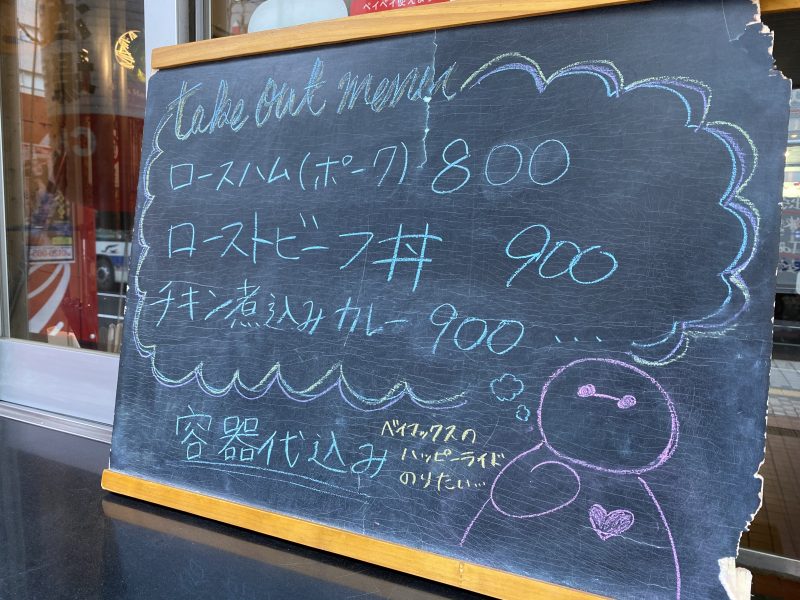 ペイペイ使えま
take out menu
ロースハム(ポーク) 800
ローストビーフ丼 900
チキン煮込みカレー 900 ...
容器代込み
ベイマックスの
ハッピーライド
のりたい...